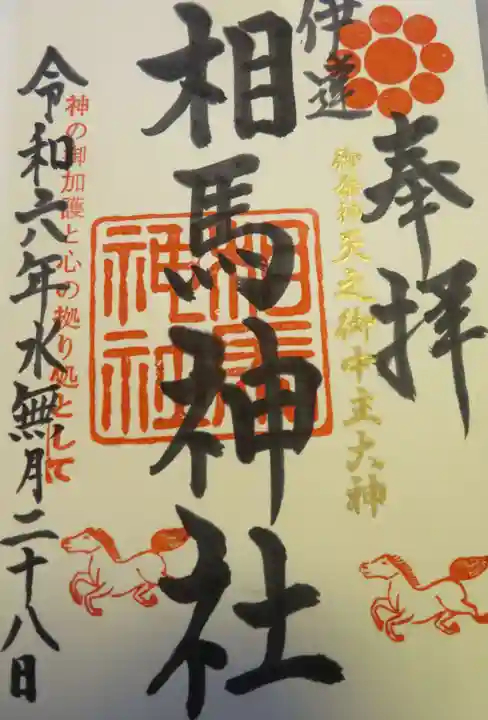 奉拝
御祭神 天之御中主大神
伊達
相馬神社
相馬神社
神の御加護と心の拠り処として
令和六年水無月二十八日